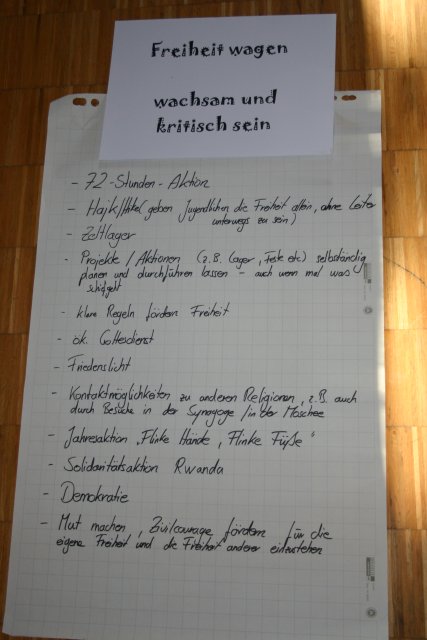 Freiheit wagen
wachsam und
kritisch sein
- 72-Stunden-Aktion
- Hajk/ geben Jugendlichen die Freiheit allein, ohne Leiter
unterwegs zu sein)
- Zeltlager
- Projekte / Aktionen (z.B. Lager, Feste etc) selbständig
planen und durchführen lassen - auch wenn mal was
schiefgeht
- klare Regeln fördern Freiheit
- ök. Gottesdienst
- Friedenslicht
- Kontaktmöglichkeiten zu anderen Religionen, z.B. auch
durch Besuche in der Synagoge / in der Moschee
- Jahresaktion „Flinke Hände, Flinke Füße"
- Solidaritätsaktion Rwanda
- Demokratie
- Mut machen, Zivilcourage fördern für die
eigene Freiheit und die Freiheit anderer einzustehen